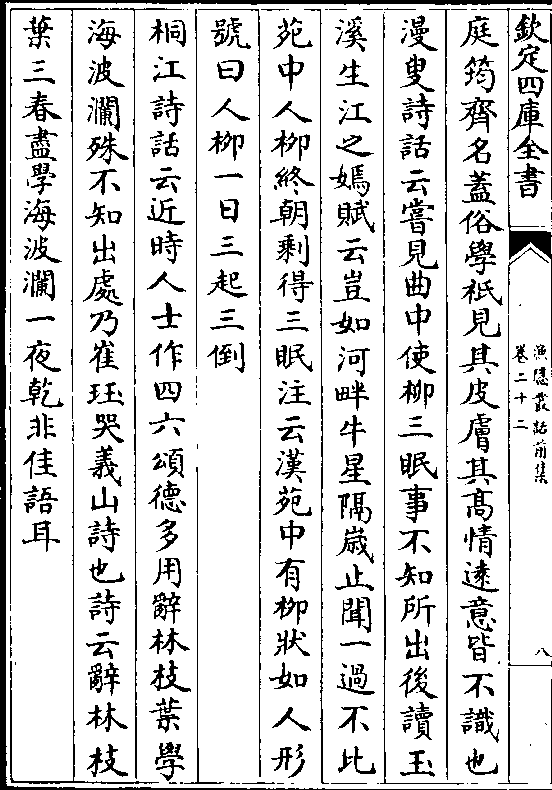 欽定四庫全書
漁隱叢話前集
卷二十二
八
庭筠齊名蓋俗學袛見其皮膚其髙情逺意皆不識也
漫叟詩話云嘗見曲中使柳三眠事不知所出後讀玉
溪生江之嫣賦云豈如河畔牛星隔嵗止聞一過不比
苑中人柳終朝剩得三眠注云漢苑中有柳狀如人形
號曰人柳一日三起三倒
桐江詩話云近時人士作四六頌德多用辭林枝葉學
海波瀾殊不知出處乃崔珏哭義山詩也詩云辭林枝
葉三春盡學海波瀾一夜乾非佳語耳